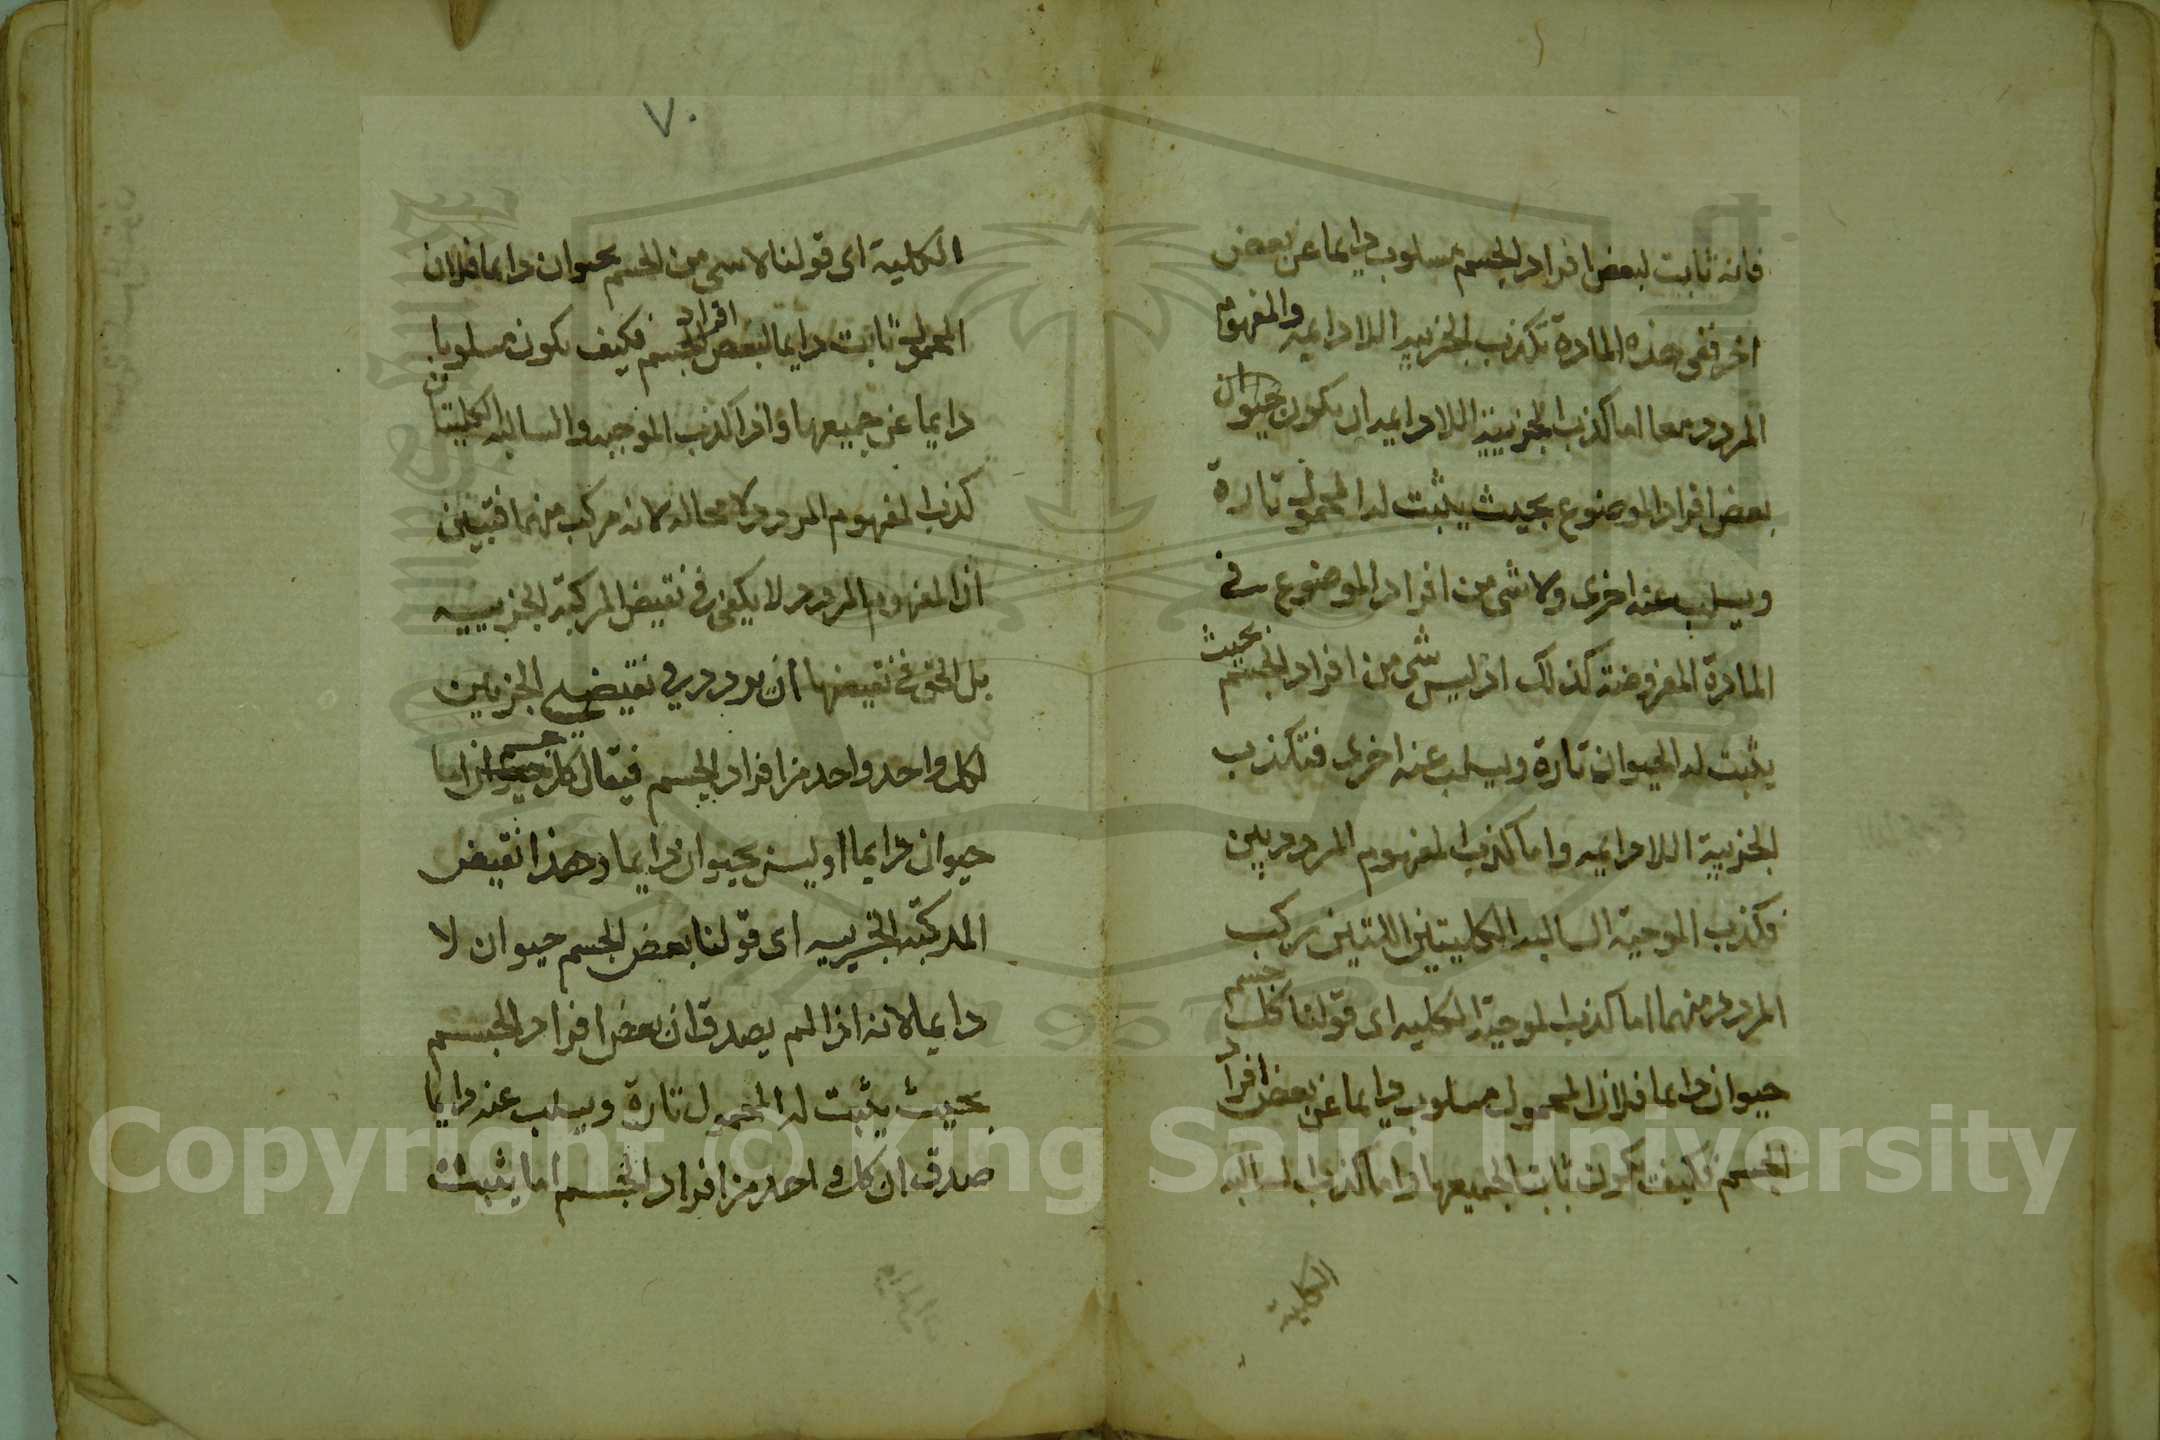 فانه ثابت لبعض افراد الجسم مسلوب دايما عن بعض
اخر ففى هذه المادة تكذب الجزييه اللادايمه والمفهوم
المردد معا اما كذب الجزييه اللادايمه ان يكون حيوان
بعض افراد الموضوع بحيث يثبت له المحمول تارة
ويسلب عنه اخرى ولا شى من افراد الموضوع فى
المادة المفروضة كذلك اذ ليس شى من افراد الجسم بحيث
يثبت له الحيوان تارة ويسلب عنه اخرى فتكذب
الجزيية اللادايمه واما كذب المفهوم المردد بين
فكذب الموجبة السالبه الكليتين اللتين ركب
المردد منهما اما كذب الموجبة الكليه اى قولنا كل جسم
حيوان دايما فلان المحمول مسلوب دايما عن بعض افراد
الجسم فكيف يكون ثابت لجميعها واما كذب السالبه
الكلية
٧٠
الكلية اى قولنا لا شى من الجسم بحيوان دايما فلان
المحمول ثابت دايما لبعض افراد الجسم فكيف يكون مسلوبا
دايما عن جميعها واذا كذب الموجبه والسالبه الكليتان
كذب المفهوم المردد لا محاله لانه مركب منهما فتبين
ان المفهوم المردد لا يكفى فى نقيض المركبة الجزييه
بل الحق فى نقيضها ان يردد بين نقيضى الجزيين
لكل واحد واحد من افراد الجسم فيقال كل جسم اما
حيوان دايما او ليس بحيوان دايما وهذا نقيض
المركبة الجزييه اى قولنا بعض الجسم حيوان لا
دايما لانه اذا لم يصدق ان بعض افراد الجسم
بحيث يثبت له المحمول تارة ويسلب عنه دايما
صدق ان كل واحد من افراد الجسم اما يثبت
Copyright © King Saud University
1957